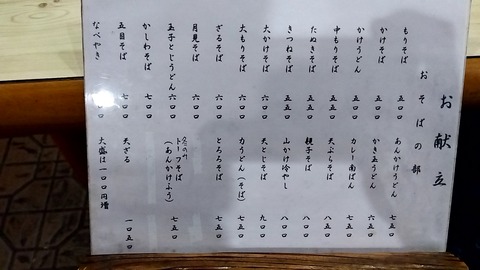 お献立
おそばの部
もりそば 五〇〇
かけそば 五〇〇
かけうどん 五〇〇
中もりそば 五五〇
たぬきそば 五五〇
きつねそば 五五〇
大かけそば 六〇〇
大もりそば 六〇〇
ざるそば 六〇〇
月見そば 六〇〇
玉子とじうどん 六〇〇
かしわそば 七〇〇
五目そば 七〇〇
なべやき
あんかけうどん 七五〇
かき玉うどん 六五〇
カレー南ばん 七五〇
天ぷらそば 八五〇
親子そば 八〇〇
山かけ冷やし 八〇〇
天とじそば 九〇〇
力うどん(そば) 七五〇
とろろそば 七五〇
冬のみ
トーフそば
(あんかけふう) 七五〇
天ざる 一〇五〇
大盛は一〇〇円増